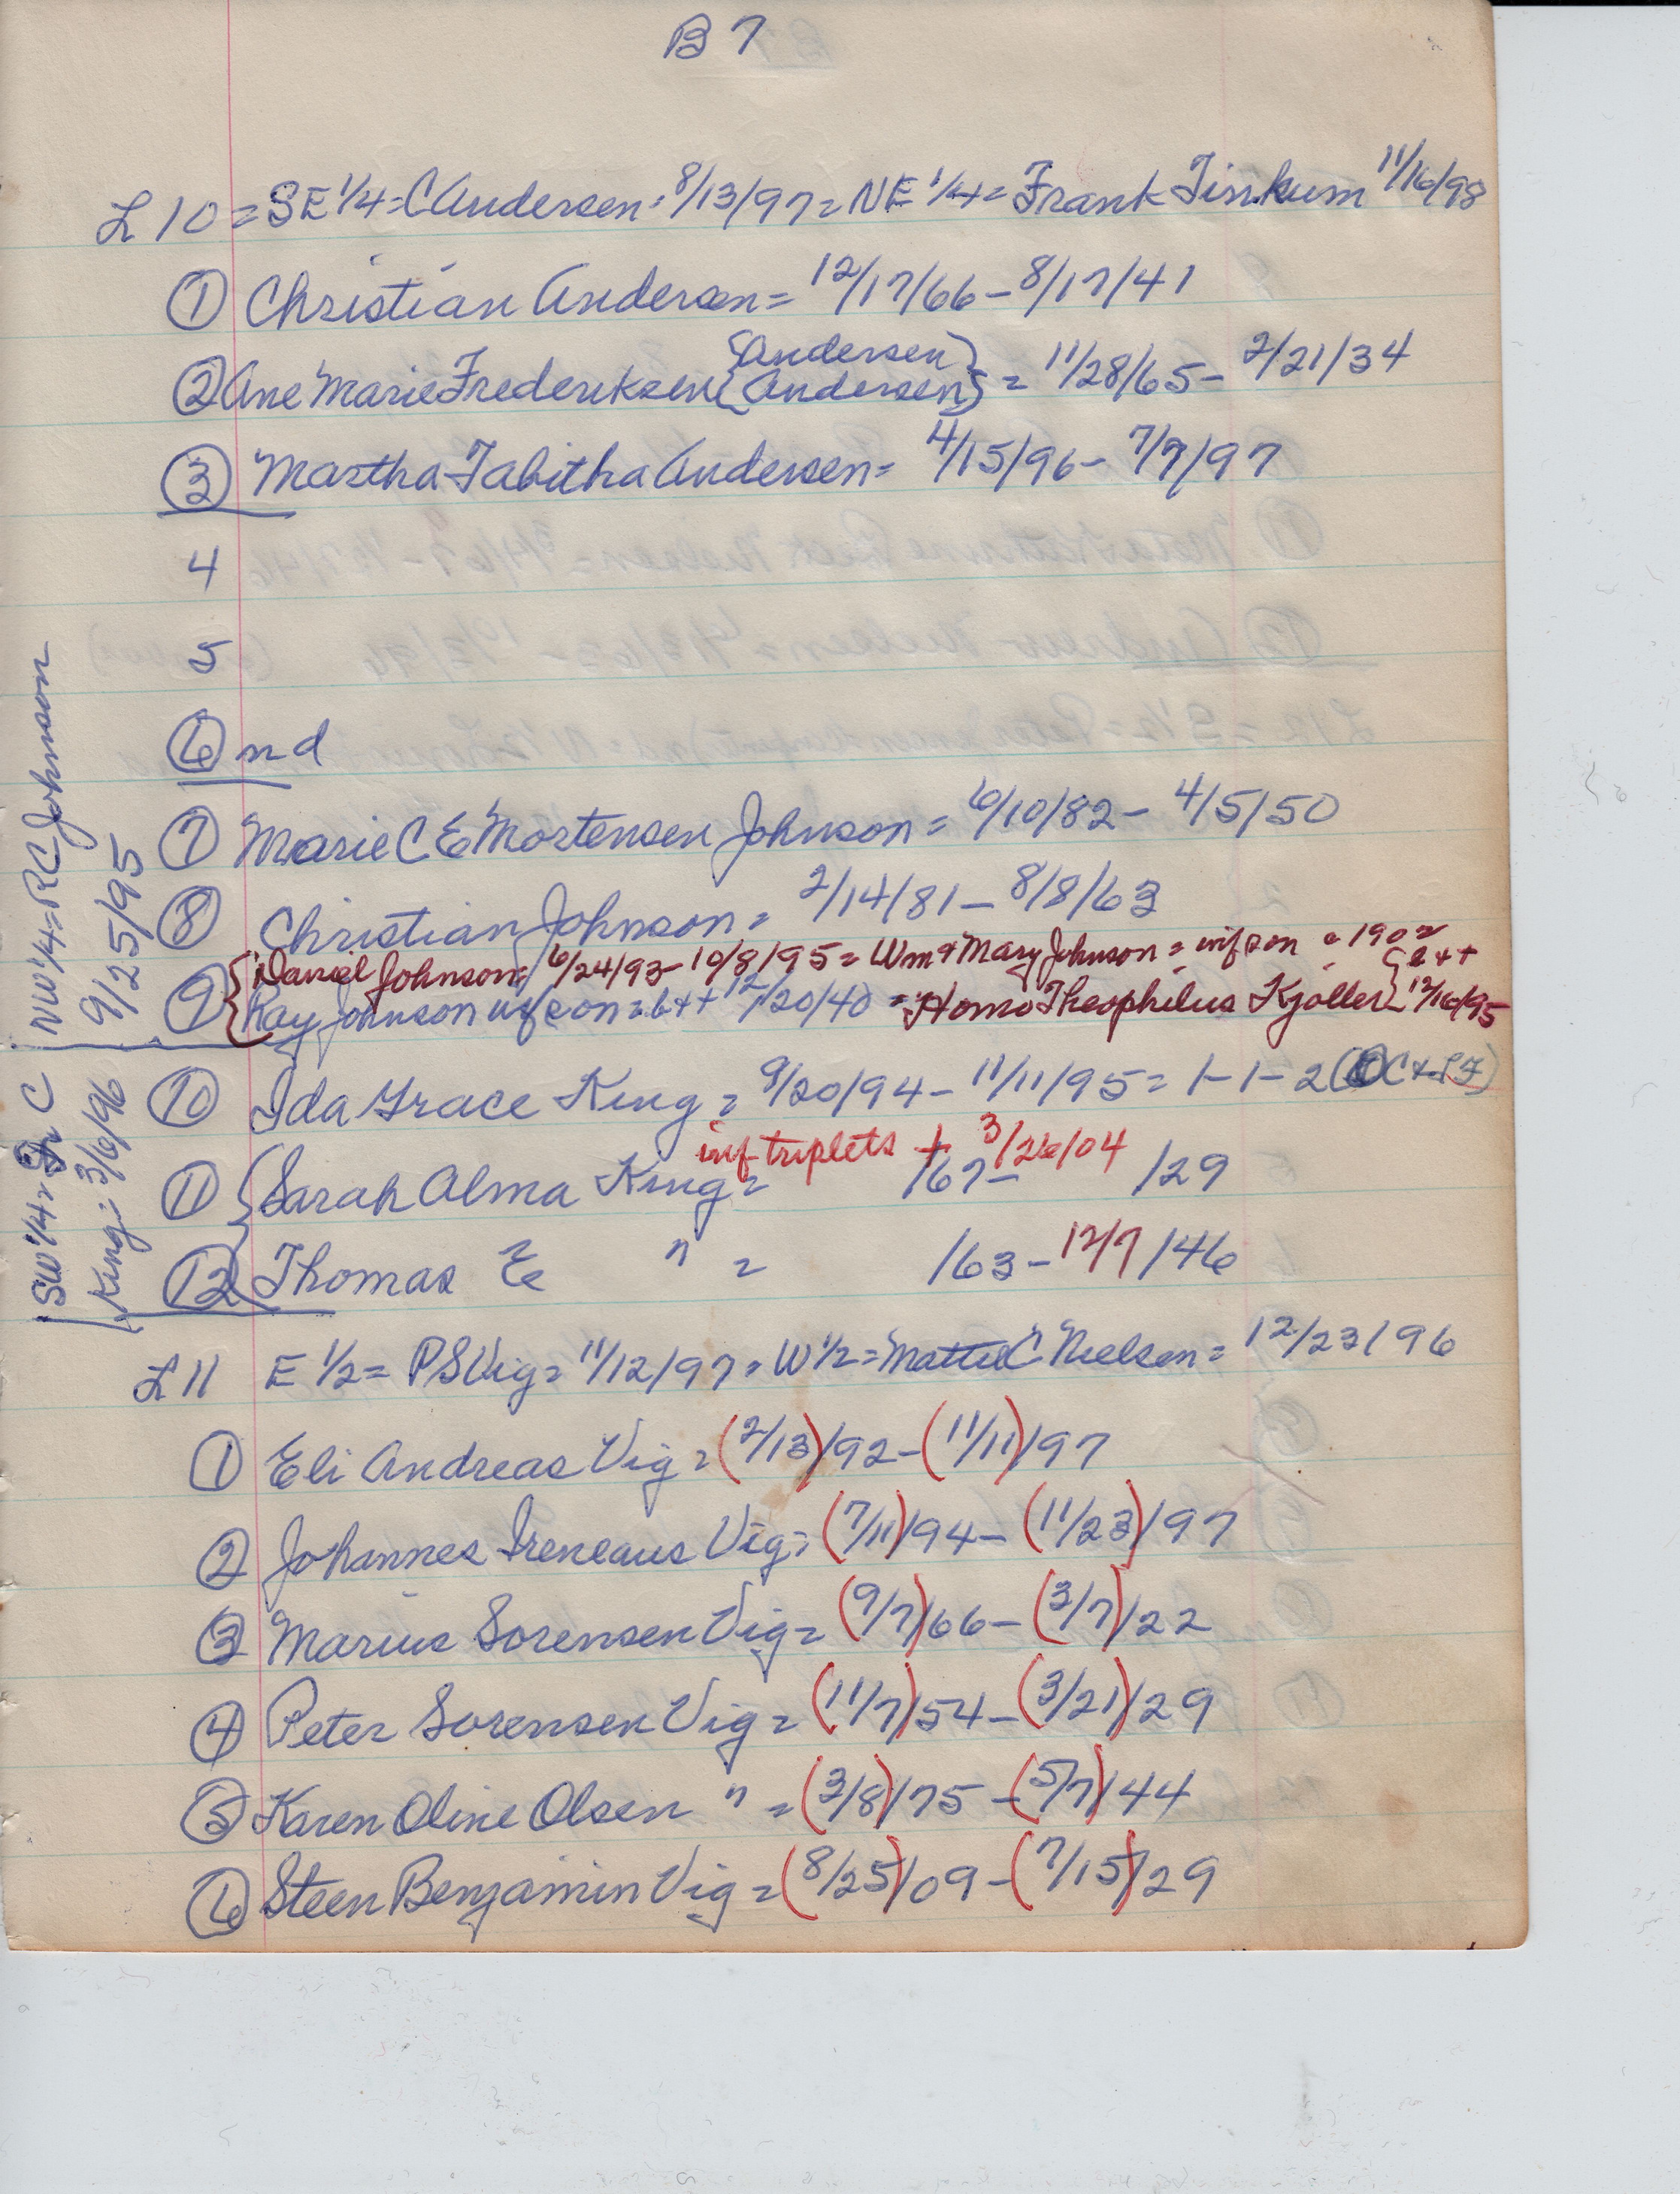 B 7
L 10 = SE 1/4 = C Andersen = 8/13/97 = NE 1/4 = Frank Tinkum 11/16/98
① Christian Andersen = 12/17/66 - 8/17/41
② Ane Marie Frederiksen {Andersen Andersen} = 11/28/65 - 2/21/34
③ Martha Tabitha Andersen = 4/15/96 - 7/7/97
4
5
⑥ nd
NW 1/4 = RC Johnson
9/25/95
⑦ Marie C E Mortensen Johnson = 6/10/82 - 4/5/50
⑧ Christian Johnson = 2/14/81 - 8/8/63
{Daniel Johnson = 6/24/93 - 10/8/95 = Wm & Mary Johnson = inf son = 190
⑨ Ray Johnson inf son = b & + 12/20/40 = Homo Theophilus Kjoller {b & + 12/16/95
SW 1/4 = C
King = 3/6/96
⑩ Ida Grace King = 9/20/94 - 11/11/95 = 1 - 1 - 2
inf triplets + 3/26/04
⑪ Sarah Alma King = /67 - /29
⑫ Thomas E " = /63 - 12/7/46
L 11 E 1/2 = P S Vig = 11/12/97 = W 1/2 = Mattie C Nielsen = 12/23/96
① Eli Andreas Vig = (2/13)/92 - (11/11)/97
② Johannes Ireneaus Vig = (7/11)/94 - (11/23)/97
③ Marius Sorensen Vig = (9/7)/66 - (3/7)/22
④ Peter Sorensen Vig = (11/7)/54 - (3/21)/29
⑤ Karen Oline Olsen " = (3/8)/75 - (5/7)/44
⑥ Steen Benjamin Vig = (8/25)/09 - (7/15)/29